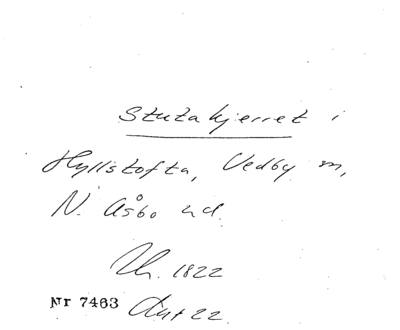 Stutakjerret i
Hyllstofta, Vedby sn,
N. Åsbo hd.
Uh. 1822
Nr 7463 Aut 22